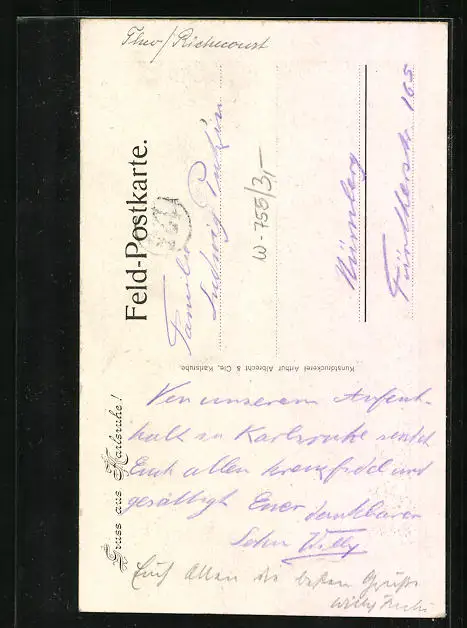 Thio/Richecourt
Feld-Postkarte.
Familie
Ludwig
W-755/3,-
Nürnberg
Fürtherstr 165
Kunstdruckerei Arthur Albrecht & Cie, Karlsruhe.
Gruss aus Karlsruhe!
Von unserem Aufent-
halt in Karlsruhe sendet
Euch allen kreuzfidel und
gesättigt Euer dankbarer
Sohn Willy
Euch Allen die besten Grüße
Willy